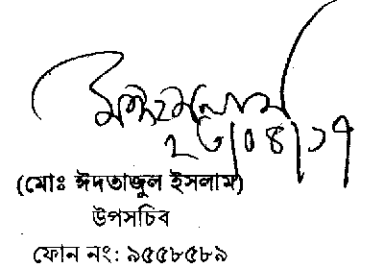 (মোঃ ঈদতাজুল ইসলাম)
উপসচিব
ফোন নং: ৯৫৫৮৫৮৯